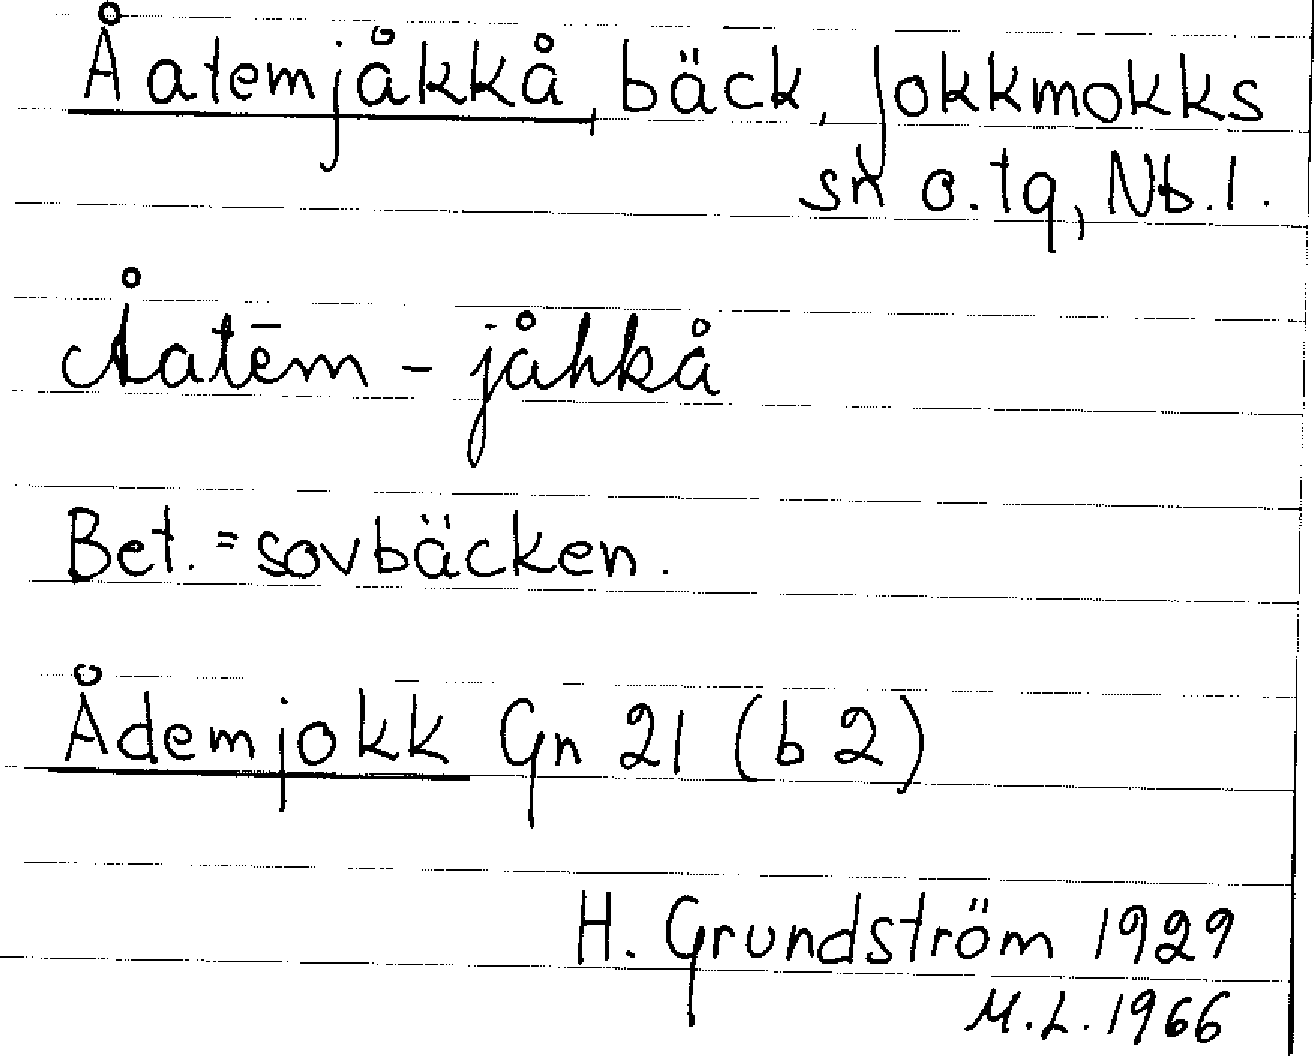 Åatemjåkkå, bäck, Jokkmokks
sn o. tg, Nb. l.
Åatēm-jåhkå
Bet. = sovbäcken.
Ådemjokk Gn 21 (b 2)
H. Grundström 1929
M.L. 1966